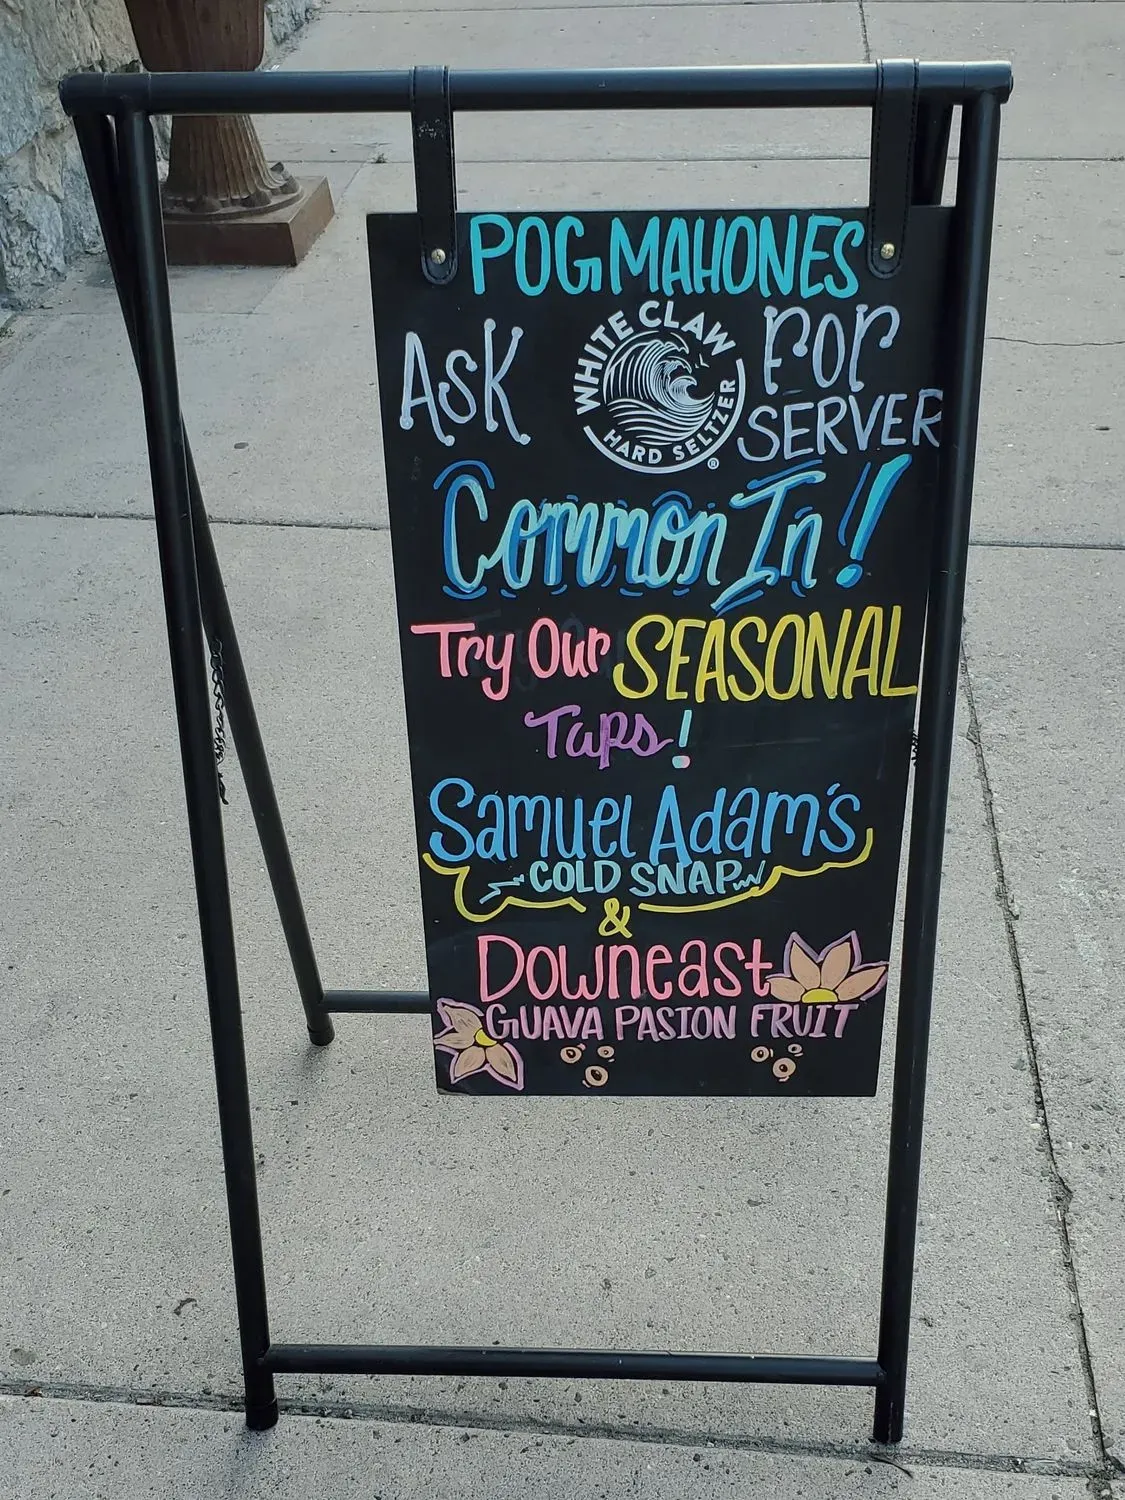 POGMAHONES
ASK WHITE CLAW HARD SELTZER ® FOR
SERVER
Common In!
Try Our SEASONAL
Taps!
Samuel Adam's
COLD SNAP
&
Downeast
GUAVA PASION FRUIT